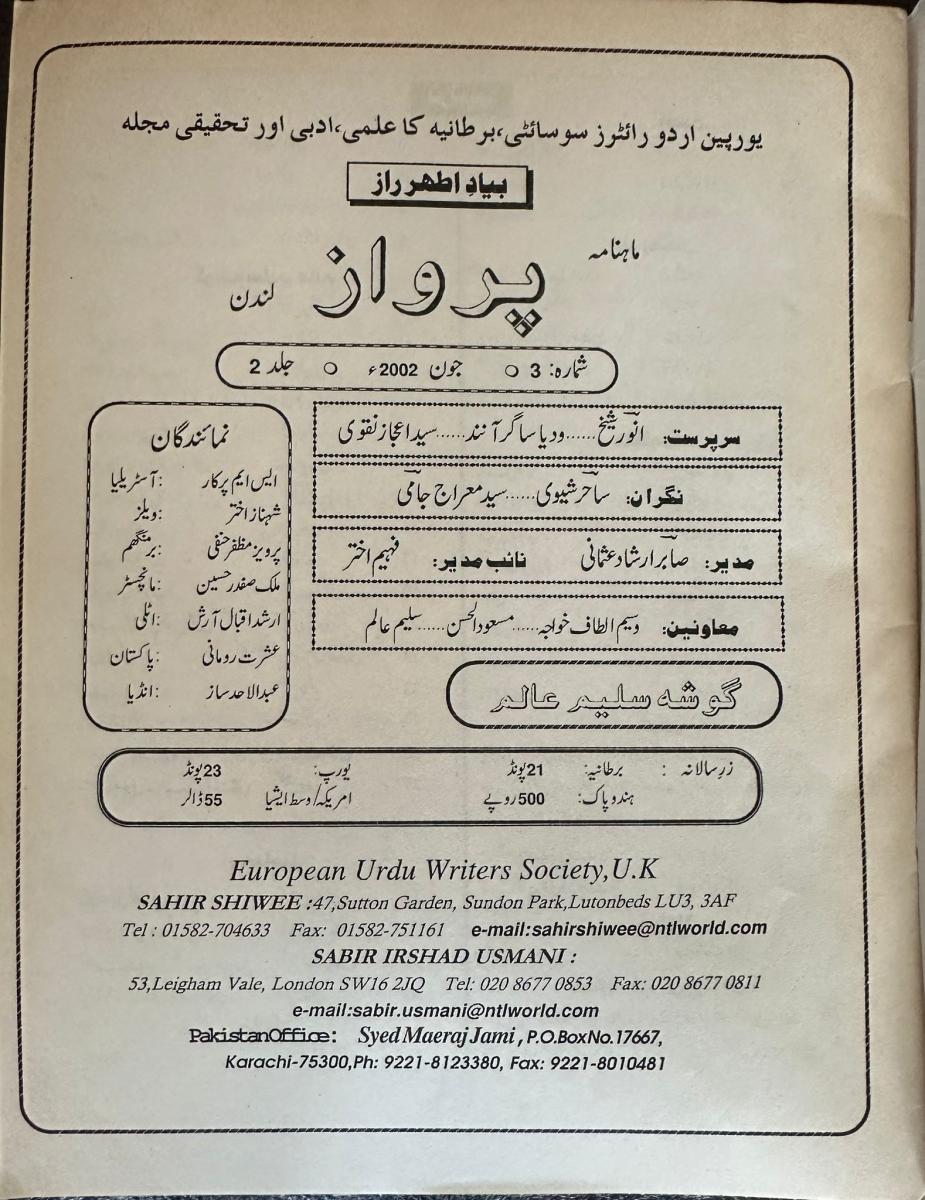 یورپین اردو رائٹرز سوسائٹی،برطانیہ کا علمی،ادبی اور تحقیقی مجلہ
بیادِ اطہر راز
ماہنامہ
پرواز
لندن
شمارہ: 3 ○ جون 2002ء ○ جلد 2
سرپرست: انور شیخ......ودیا ساگر آنند......سید اعجاز نقوی
نگران: ساحر شیوی......سید معراج جامی
مدیر: صابر ارشاد عثمانی نائب مدیر: فہیم اختر
معاونین: وسیم الطاف خواجہ......مسعود الحسن......سلیم عالم
گوشہ سلیم عالم
نمائندگان
ایس ایم پرکار :آسٹریلیا
شہناز اختر :ویلز
پرویز مظفر حنفی :برمنگھم
ملک صفدر حسین :مانچسٹر
ارشد اقبال آرش :اٹلی
عشرت رومانی :پاکستان
عبدالاحد ساز :انڈیا
زرِ سالانہ : برطانیہ: 21پونڈ یورپ: 23پونڈ
ہندوپاک: 500روپے امریکہ/وسط ایشیا 55ڈالر
European Urdu Writers Society,U.K
SAHIR SHIWEE :47,Sutton Garden, Sundon Park,Lutonbeds LU3, 3AF
Tel : 01582-704633 Fax: 01582-751161 e-mail:sahirshiwee@ntlworld.com
SABIR IRSHAD USMANI :
53,Leigham Vale, London SW16 2JQ Tel: 020 8677 0853 Fax: 020 8677 0811
e-mail:sabir.usmani@ntlworld.com
PakistanOffice: Syed Maeraj Jami, P.O.BoxNo.17667,
Karachi-75300,Ph: 9221-8123380, Fax: 9221-8010481